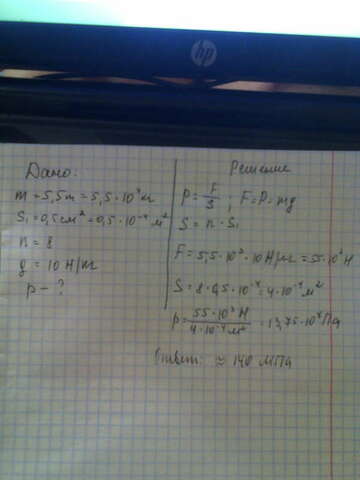 hp
Дано:
m = 5,5т = 5,5·10³кг
S₁ = 0,5см² = 0,5·10⁻⁴ м²
n = 8
g = 10 Н/кг
p - ?
Решение
p = F/S ; F = P = mg
S = n · S₁
F = 5,5·10³·10 Н/кг = 55·10³ Н
S = 8·0,5·10⁻⁴ = 4·10⁻⁴ м²
p = 55·10³ Н / 4·10⁻⁴ м² = 13,75·10⁷ Па
Ответ: ≃ 140 МПа